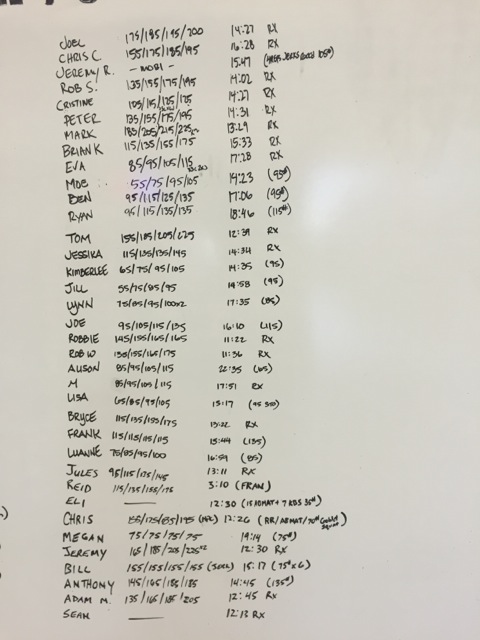 JOEL 175/185/195/200 14:27 RX
CHRIS C. 155/175/185/195 16:28 RX
JEREMY R. - MOBI - 15:47
ROB S. 135/155/175/195 14:02 RX
CRISTINE 105/115/125/135 14:27 RX
PETER 135/155/175/195 14:31 RX
MARK 185/205/215/225 13:29 RX
BRIANK 115/135/155/175 15:33 RX
EVA 85/95/105/115 17:28 RX
MOE 55/75/95/105 19:23 (95#)
BEN 95/115/125/135 17:06 (95#)
RYAN 95/115/135/135 18:46 (115#)
TOM 155/185/205/225 12:39 RX
JESSIKA 115/135/135/145 14:34 RX
KIMBERLEE 65/75/95/105 14:35 (95)
JILL 55/75/85/95 14:58 (95)
LYNN 75/85/95/100x2 17:35 (85)
JOE 95/105/115/135 16:10 (115)
ROBBIE 145/155/165/165 11:22 RX
ROB W 135/155/165/175 11:36 RX
ALISON 85/95/105/115 22:35 (65)
M 85/95/105/115 17:51 RX
LISA 65/85/95/105 15:17
BRYCE 115/135/155/175 13:22 RX
FRANK 115/115/115/115 15:44 (135)
LUANNE 75/85/95/100 16:59 (85)
JULES 95/115/135/145 13:11 RX
REID 115/135/155/175 3:10 (FRAN)
ELI 12:30 (15 ABMAT + 7 KBS 35#)
CHRIS 155/175/185/195 12:26
MEGAN 75/75/75/75 19:14 (75#)
JEREMY 165/185/205/225x2 12:30 RX
BILL 155/155/155/155 15:17
ANTHONY 145/165/185/185 14:45 (135#)
ADAM M. 135/165/185/205 12:45 RX
SEAN 12:13 RX